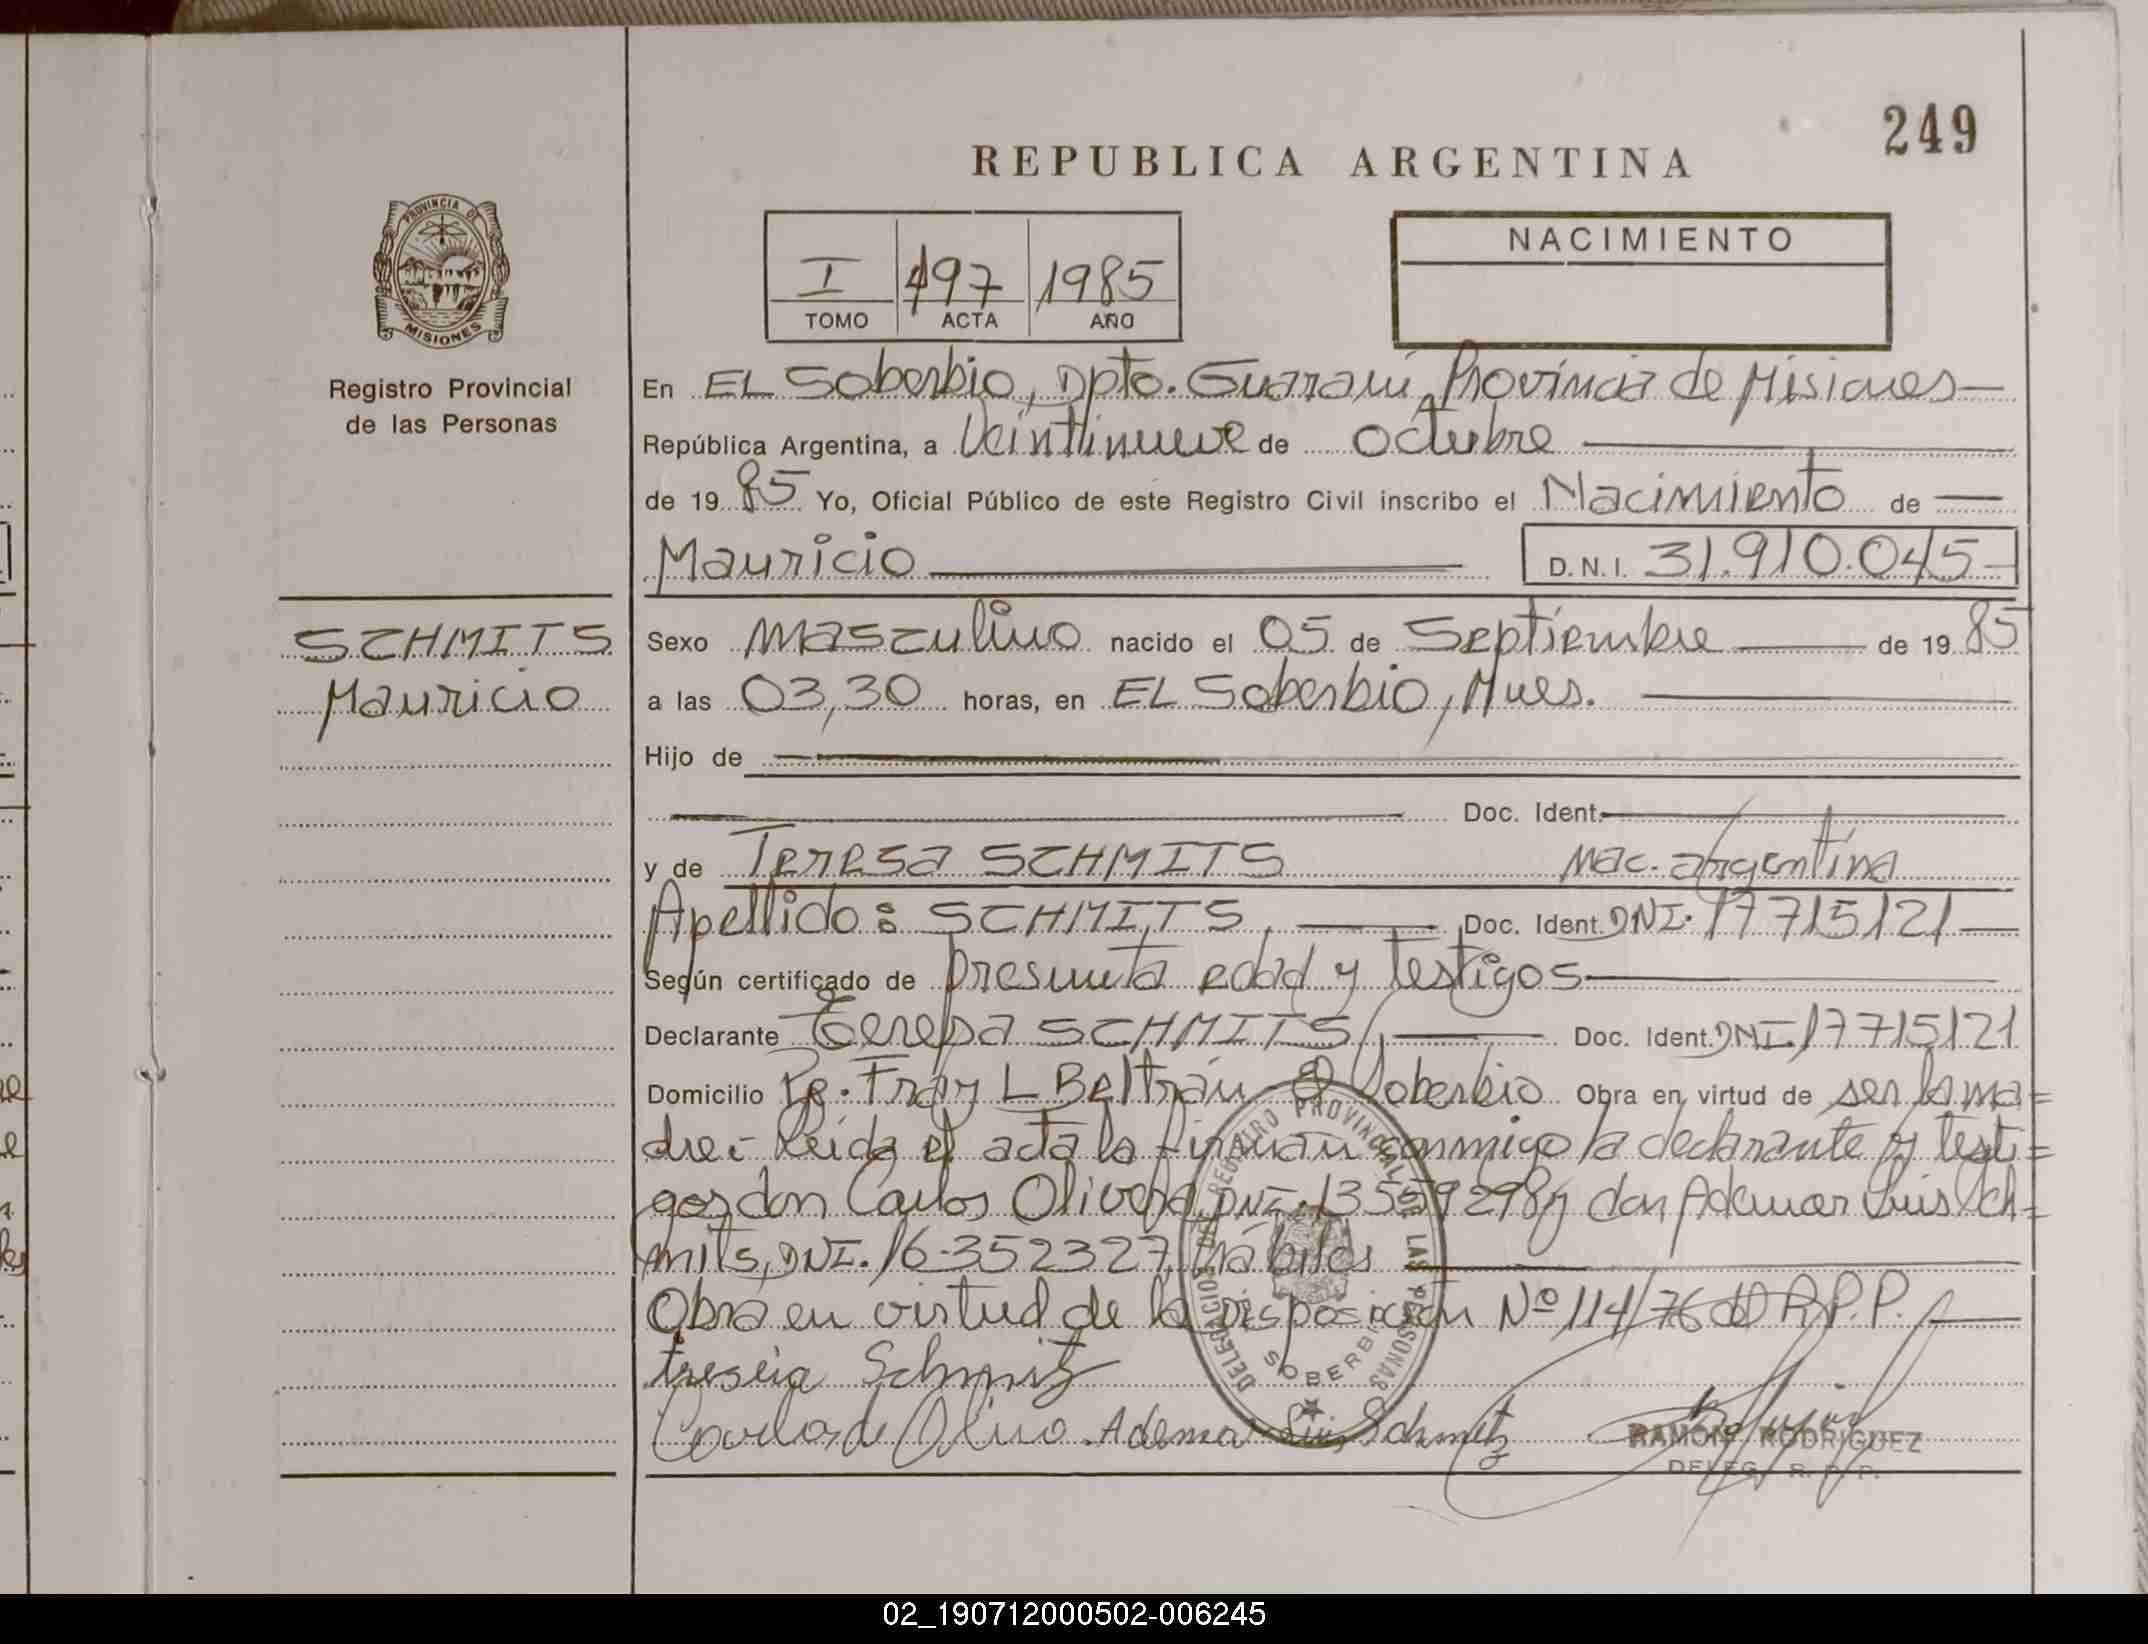 249
REPUBLICA ARGENTINA
PROVINCIA DE
MISIONES
Registro Provincial
de las Personas
I 497 1985
TOMO ACTA AÑO
NACIMIENTO
En EL Soberbio, Dpto. Guaraní, Provincia de Misiones
República Argentina, a Veintinueve de octubre
de 19 85 Yo, Oficial Público de este Registro Civil inscribo el Nacimiento de
Mauricio D.N.I. 31.910.045
SCHMITS
Mauricio
Sexo Masculino nacido el 05 de Septiembre de 19 85
a las 03,30 horas, en EL Soberbio, Mnes.
Hijo de
Doc. Ident.
y de Teresa SCHMITS Nac. argentina
Apellido: SCHMITS, Doc. Ident. DNI. 17715121
Según certificado de presunta edad y testigos
Declarante Teresa SCHMITS, Doc. Ident. DNI. 17715121
Domicilio Pe. Fray L Beltrán - El Soberbio Obra en virtud de ser la ma=
dre.- Leída el acta la firman conmigo la declarante y testi=
gos don Carlos Olivera, DNI. 13559298 y don Ademar Luis Sch=
mits, DNI. 16.352327, hábiles
Obra en virtud de la Disposición Nº 114/76 del R.P.P.
treseia Schmitz
Carlos de Oliv Ademar Luis Schmitz
DELEGACION DEL REGISTRO PROVINCIAL DE LAS PERSONAS
SOBERBIO
RAMON RODRIGUEZ
DELEG. R. P. P.
02_190712000502-006245